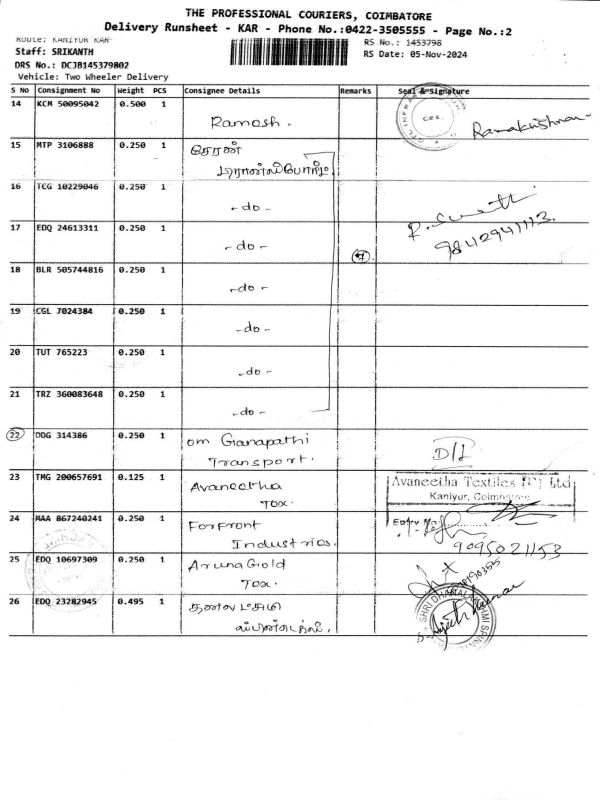 THE PROFESSIONAL COURIERS, COIMBATORE
Delivery Runsheet - KAR - Phone No.:0422-3505555 - Page No.:2
Route: KANIYUR KAR
RS No.: 1453798
Staff: SRIKANTH
RS Date: 05-Nov-2024
DRS No.: DCJB145379802
Vehicle: Two Wheeler Delivery
S No Consignment No Weight PCS Consignee Details Remarks Seal & Signature
14 KCM 50095042 0.500 1 Ramesh. Ramakrishnan
15 MTP 3106888 0.250 1
16 TCG 10229046 0.250 1 - do -
9842941113.
17 EDQ 24613311 0.250 1 - do -
18 BLR 505744816 0.250 1 - do -
19 CGL 7024384 0.250 1 - do -
20 TUT 765223 0.250 1 - do -
21 TRZ 360083648 0.250 1 - do -
22 DDG 314386 0.250 1 om Ganapathi
Transport.
23 TMG 200657691 0.125 1 Avaneetha
Tex.
Avaneetha Textiles (P) Ltd
Kaniyur, Coimbatore
24 MAA 867240241 0.250 1 Forfront
Industries.
Entry No
9095021153
25 EDQ 10697309 0.250 1 Aruna Gold
Tex.
26 EDQ 23282945 0.495 1